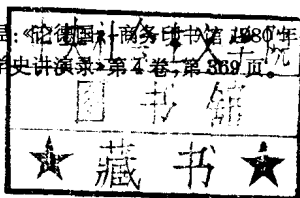 《论德国》,商务印书馆 1980 年
学史讲演录》第 4 卷,第 369 页。
社会主义学院
图书馆
★藏书★